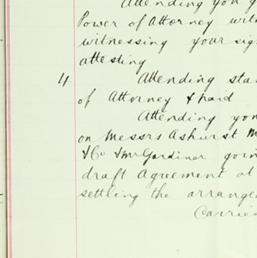 Attending you
Power of Attorney
witnessing your sig
attesting
4 Attending sta
of Attorney & paid
Attending yo
on Messrs Ashurst M
& Co & Mr Gardiner goin
draft Agreement
settling the arrange
Carrie